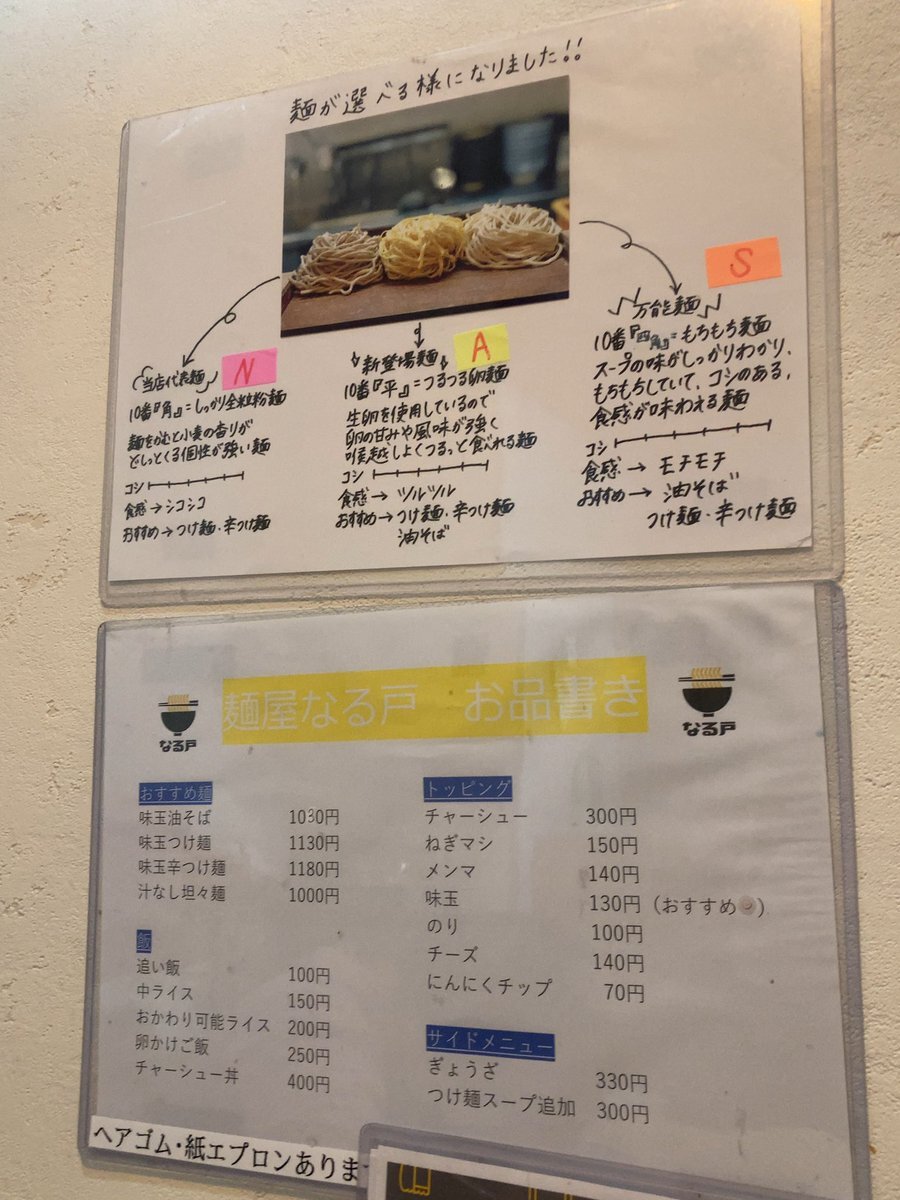 麺が選べる様になりました!!
N
当店代表麺
10番『角』=しっかり全粒粉麺
麺をかむと小麦の香りが
どしっとくる個性が強い麺
コシ
食感→シコシコ
おすすめ→つけ麺・辛つけ麺
A
新登場麺
10番『平』=つるつる卵麺
生卵を使用しているので
卵の甘みや風味が強く
喉越しよくつるっと食べれる麺
コシ
食感→ツルツル
おすすめ→つけ麺・辛つけ麺
油そば
S
万能麺
10番『四角』=もちもち麺
スープの味がしっかりわかり、
もちもちしていて、コシのある、
食感が味わえる麺
コシ
食感→モチモチ
おすすめ→油そば
つけ麺・辛つけ麺
なる戸
麺屋なる戸 お品書き
なる戸
おすすめ麺
味玉油そば 1030円
味玉つけ麺 1130円
味玉辛つけ麺 1180円
汁なし坦々麺 1000円
飯
追い飯 100円
中ライス 150円
おかわり可能ライス 200円
卵かけご飯 250円
チャーシュー丼 400円
トッピング
チャーシュー 300円
ねぎマシ 150円
メンマ 140円
味玉 130円(おすすめ)
のり 100円
チーズ 140円
にんにくチップ 70円
サイドメニュー
ぎょうざ 330円
つけ麺スープ追加 300円
ヘアゴム・紙エプロンありま